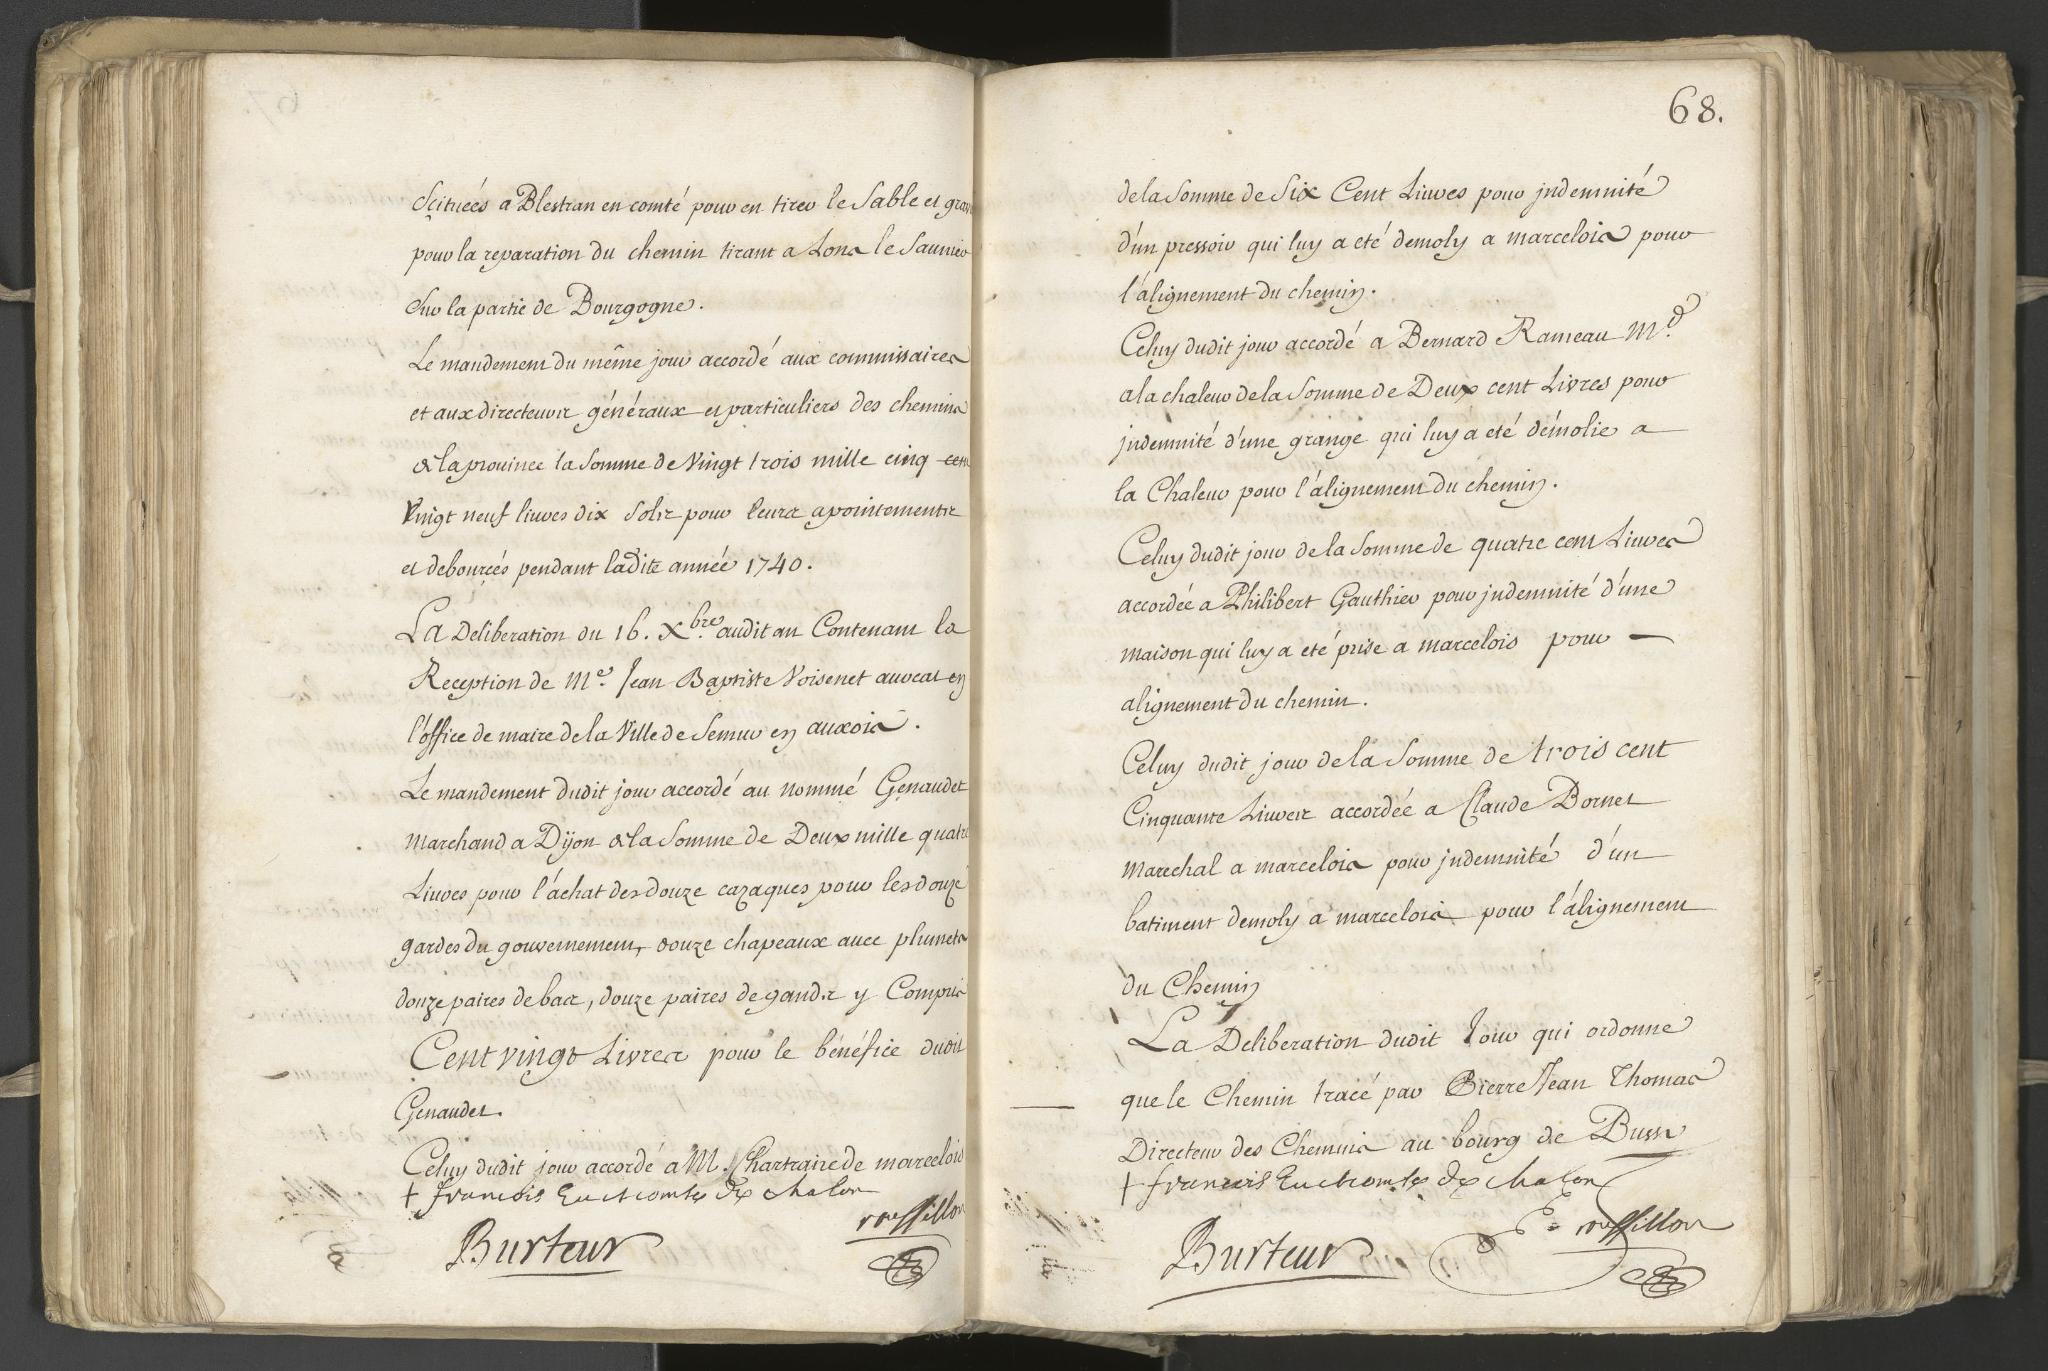 Scituées a Blestran en comté pour en tirer le Sable et grav
pour la reparation du chemin tirant a Lons le Saunier
Sur la partie de Bourgogne.
Le mandement du même jour accordé aux commissaires
et aux directeurs généraux et particuliers des chemins
de la prouince la Somme de Vingt trois mille cinq cent
Vingt neuf liures dix Sols pour leurs apointements
et debourcés pendant ladite année 1740.
La Deliberation du 16. Xbre. audit an Contenant la
Reception de Me. Jean Baptiste Voisenet auocat en
l'office de maire de la Ville de Semur en auxois.
Le mandement dudit jour accordé au nommé Genaudet
Marchand a Dijon de la Somme de Deux mille quatre
Liures pour l'áchat des douze cazaques pour les douze
gardes du gouvernement, douze chapeaux auec plumets
douze paires de bas, douze paires de gands y Compris
Cent vingt Livres pour le bénéfice dudit
Genaudet.
Celuy dudit jour accordé a M. Chartraire de marcelois
† francois Eu et comte de chalon
Burteur
roussillon
68.
de la Somme de Six Cent Liures pour jndemnité
d'un pressoir qui luy a eté demoly a marcelois pour
l'álignement du chemin.
Celuy dudit jour accordé a Bernard Rameau Md.
a la chaleur de la Somme de Deux cent Livres pour
jndemnité d'une grange qui luy a eté démolie a
la Chaleur pour l'álignement du chemin.
Celuy dudit jour de la Somme de quatre cent Liures
accordée a Philibert Gauthier pour jndemnité d'une
maison qui luy a eté prise a marcelois pour
alignement du chemin.
Celuy dudit jour de la Somme de trois cent
Cinquante Liures accordée a Claude Bornet
Marechal a marcelois pour jndemnité d'un
batiment demoly a marcelois pour l'álignement
du Chemin
La Deliberation dudit Jour qui ordonne
que le Chemin tracé par Pierre Jean Thomas
Directeur des Chemins au bourg de Bussy
† francois Eu et comte de chalon
Burteur
E = roussillon